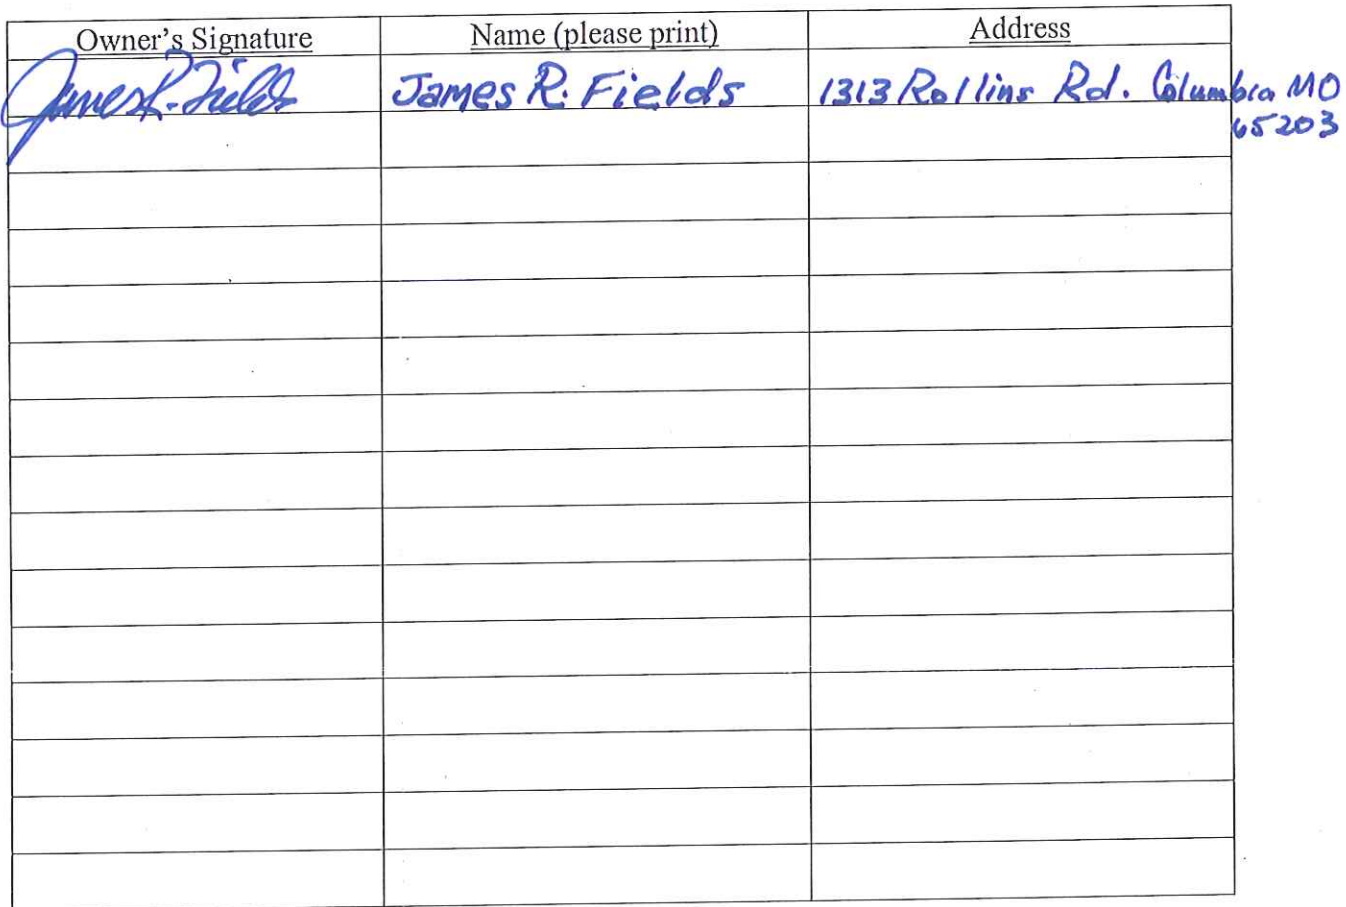 Owner's Signature Name (please print) Address
James R. Fields James R. Fields 1313 Rollins Rd. Columbia MO
65203